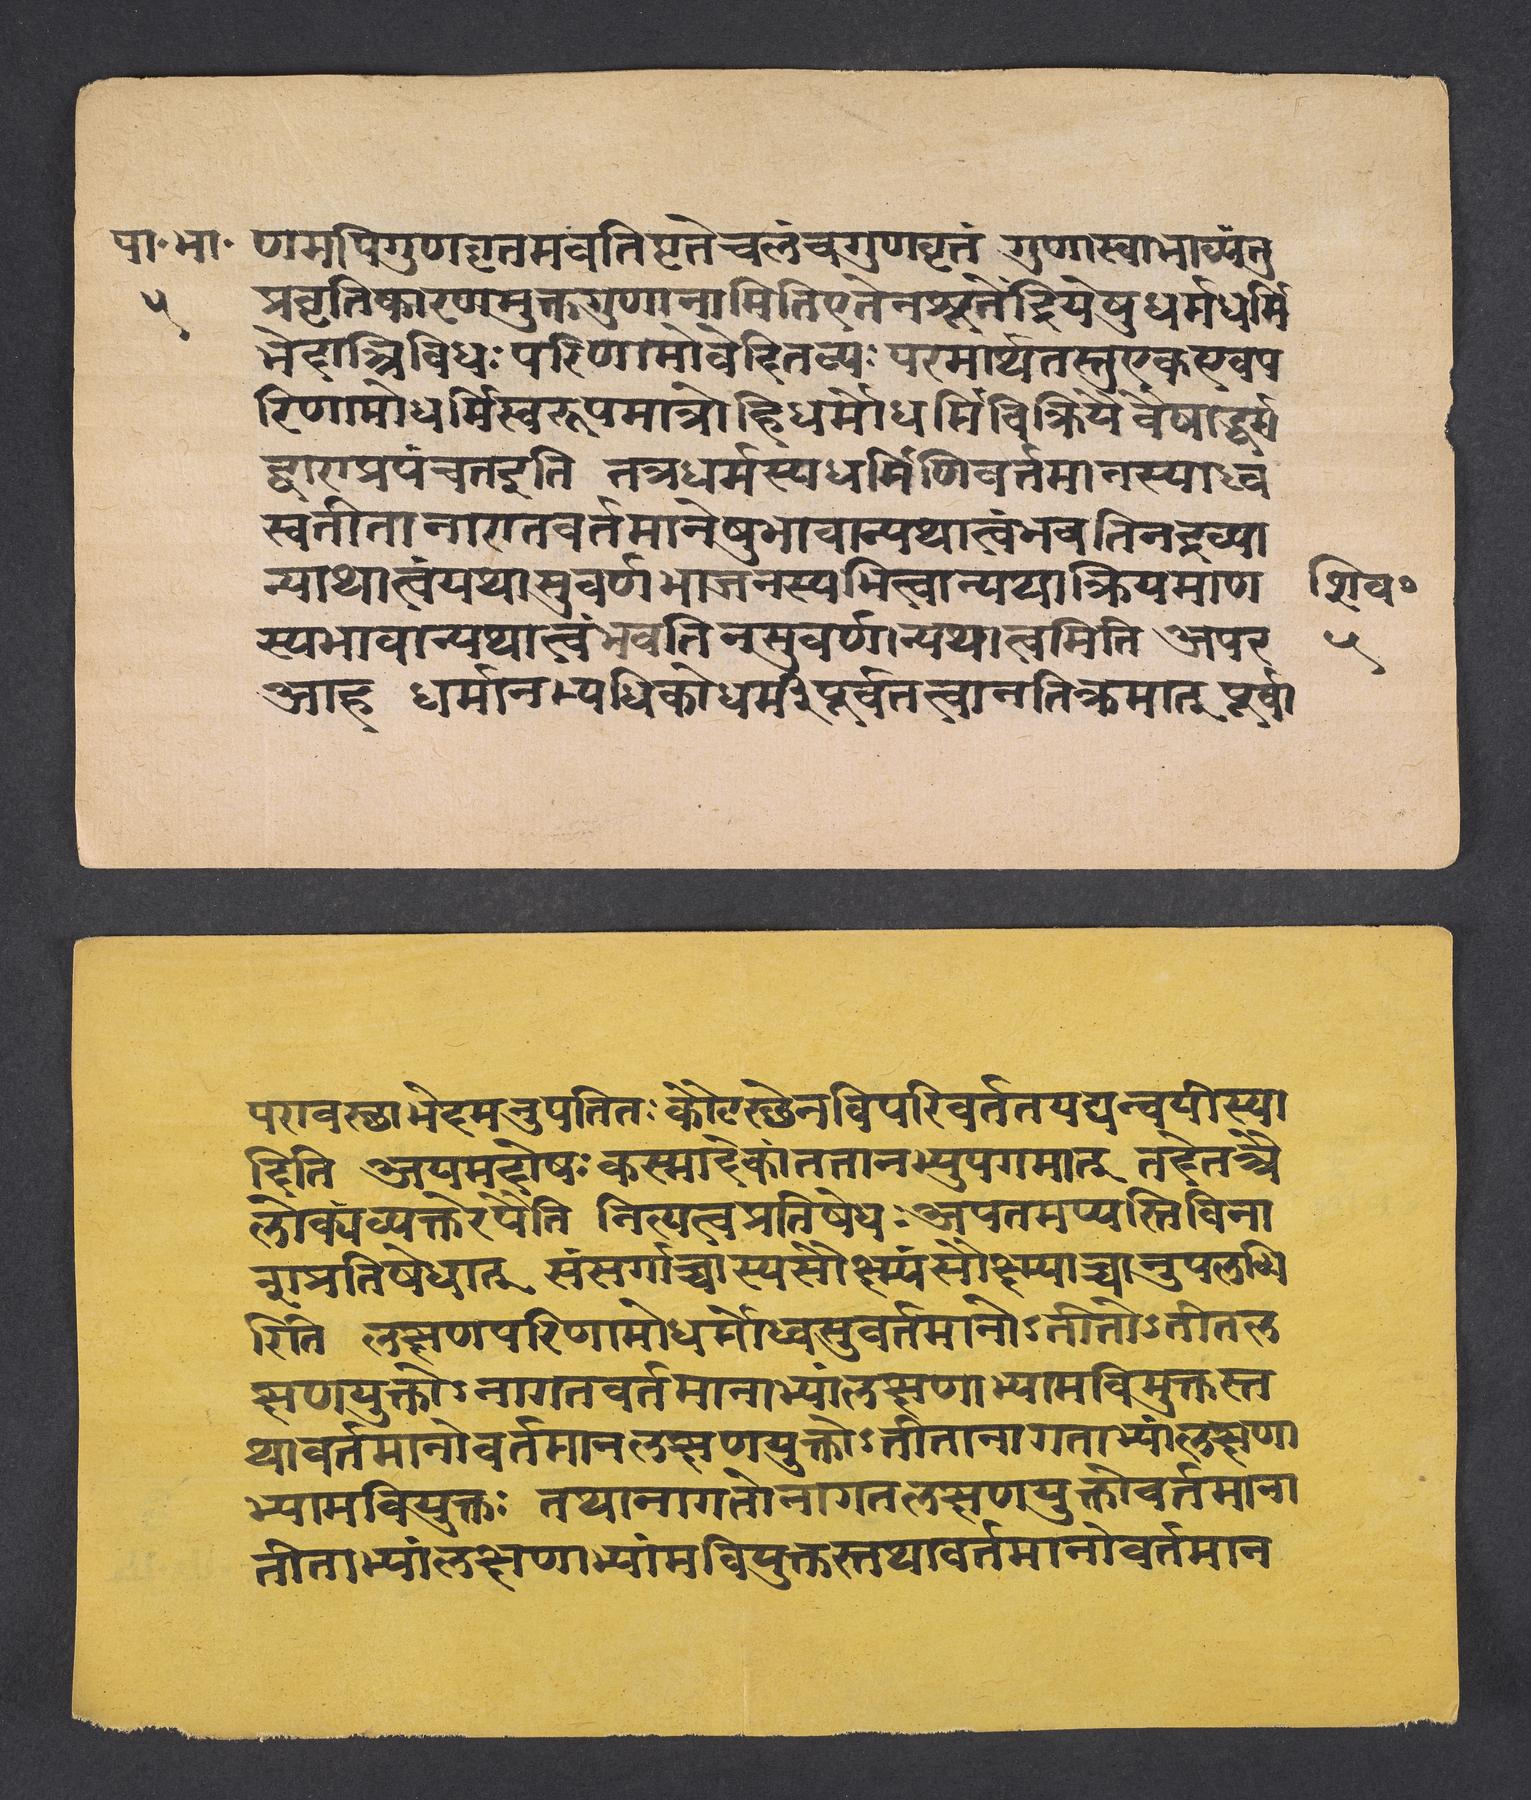 पा॰भा॰ णमपिगुणवृतमवंतिष्टतेचलंचगुणवृतं गुणास्वाभाव्यंतु
५ प्रवृतिकारणमुक्तगुणानामितिएतेनभूतेंद्रियेषुधर्मधर्मि
भेदात्त्रिविधः परिणामोवेदितव्यः परमार्थतस्तुएकएवप
रिणामोधर्मिस्वरूपमात्रोहिधर्मोधर्मिविक्रियैवैषाद्धर्म
द्वाराप्रपंचतइति तत्रधर्मस्यधर्मिणिवर्तमानस्याध्व
स्वतीतानारातवर्तमानेषुभावान्यथात्वंभवतिनद्रव्या
न्याथात्वंयथासुवर्णभाजनस्यभित्वान्यथाक्रियमाण शिव॰
स्यभावान्यथात्वंभवतिनसुवर्णान्यथात्वमिति अपर ५
आह धर्मानभ्यधिकोधर्मीपूर्वतत्वानतिक्रमात् पूर्वा
परावस्छाभेदमनुपतितः कौटस्छेनविपरिवर्ततयद्यन्वयीस्या
दिति अयमदोषः कस्मादेकांततानभ्युपगमात् तदेतत्त्रै
लोक्यंव्यक्तेरपैति नित्यत्वप्रतिषेधः अपतमप्यस्तिविना
शप्रतिषेधात् संसर्गाच्चास्यसौक्ष्म्यंसौक्ष्म्याच्चानुपलब्धि
रिति लक्षणपरिणामोधर्मोध्वसुवर्तमानोऽतीतोऽतीतल
क्षणयुक्तोऽनागतवर्तमानाभ्यांलक्षणाभ्यामविमुक्तस्त
थावर्तमानोवर्तमानलक्षणयुक्तोऽतीतानागताभ्यांलक्षणा
भ्यामवियुक्तः तथानागतोनागतलक्षणयुक्तोवर्तमाना
तीताभ्यांलक्षणाभ्यांमवियुक्तस्तथावर्तमानोवर्तमान